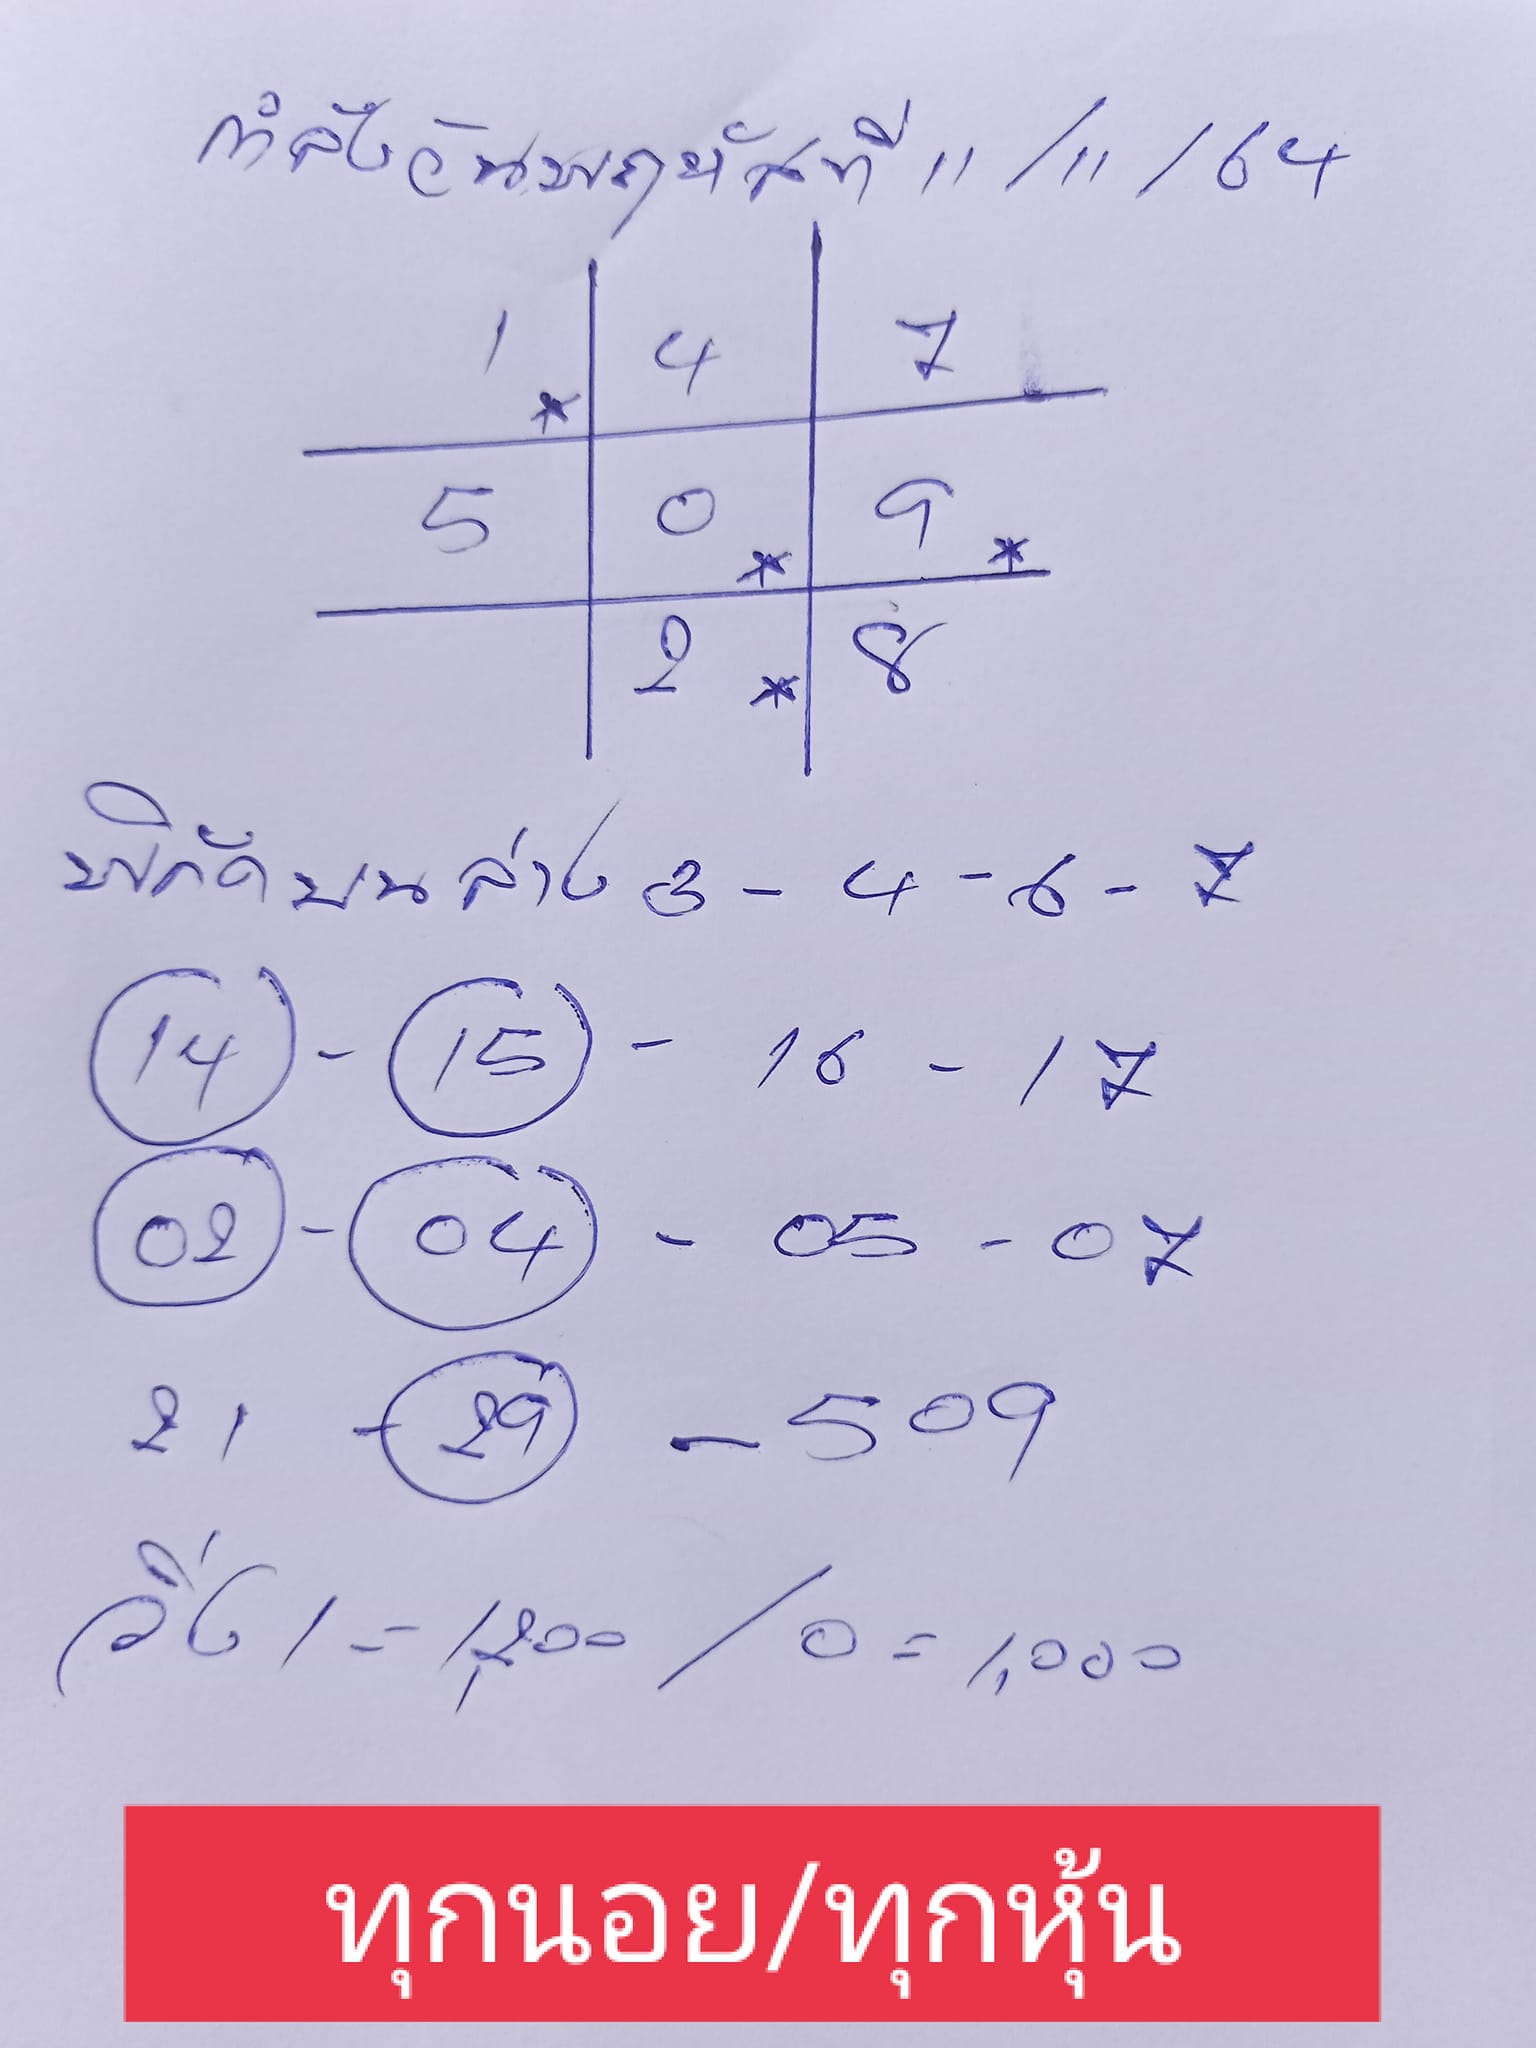 กำลังวันพฤหัสที่ 11/11/64
1 * 4 7
5 0 * 9 *
2 * 8
พิกัดบนล่าง 3 - 4 - 6 - 7
14 - 15 - 16 - 17
02 - 04 - 05 - 07
21 - 29 - 509
วิ่ง 1 = 1,200 / 0 = 1,000
ทุกนอย/ทุกหุ้น